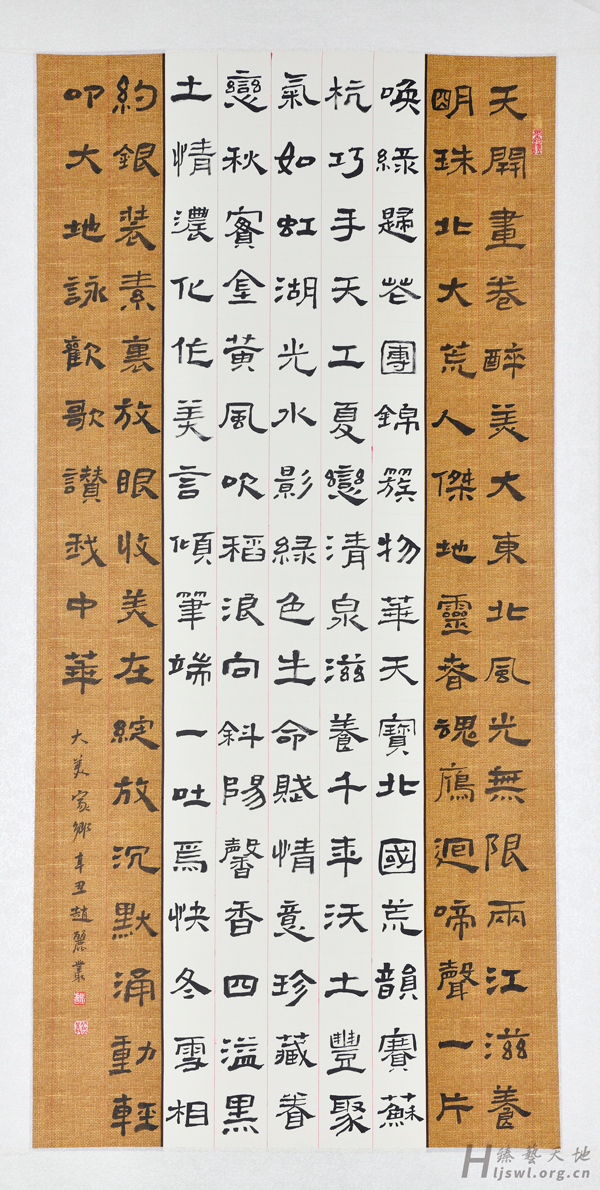 天開畫卷醉美大東北風光無限兩江滋養
明珠北大荒人傑地靈春魂鴈迴啼聲一片
喚綠歸花團錦簇物華天寶北國荒韻賽蘇
杭巧手天工夏戀清泉滋養千年沃土豐聚
氣如虹湖光水影綠色生命賦情意珍藏眷
戀秋賓金黃風吹稻浪向斜陽馨香四溢黑
土情濃化作美言傾筆端一吐焉快冬雪相
約銀裝素裹放眼收美在綻放沉默涌動輕
叩大地詠歡歌讚我中華
大美家鄉辛丑趙麗叢
臻藝天地
Hljswl.org.cn